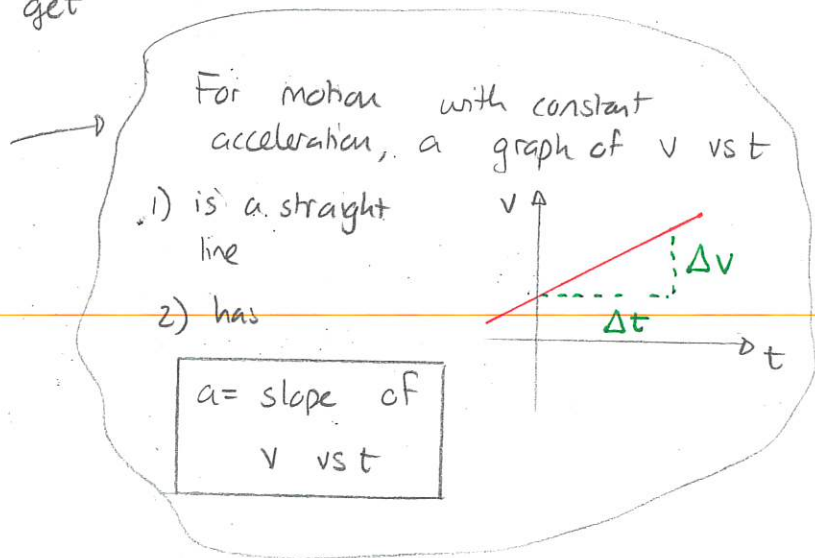 get
For motion with constant
acceleration, a graph of v vs t
1) is a straight
line
v
Δv
Δt
t
2) has
a = slope of
v vs t